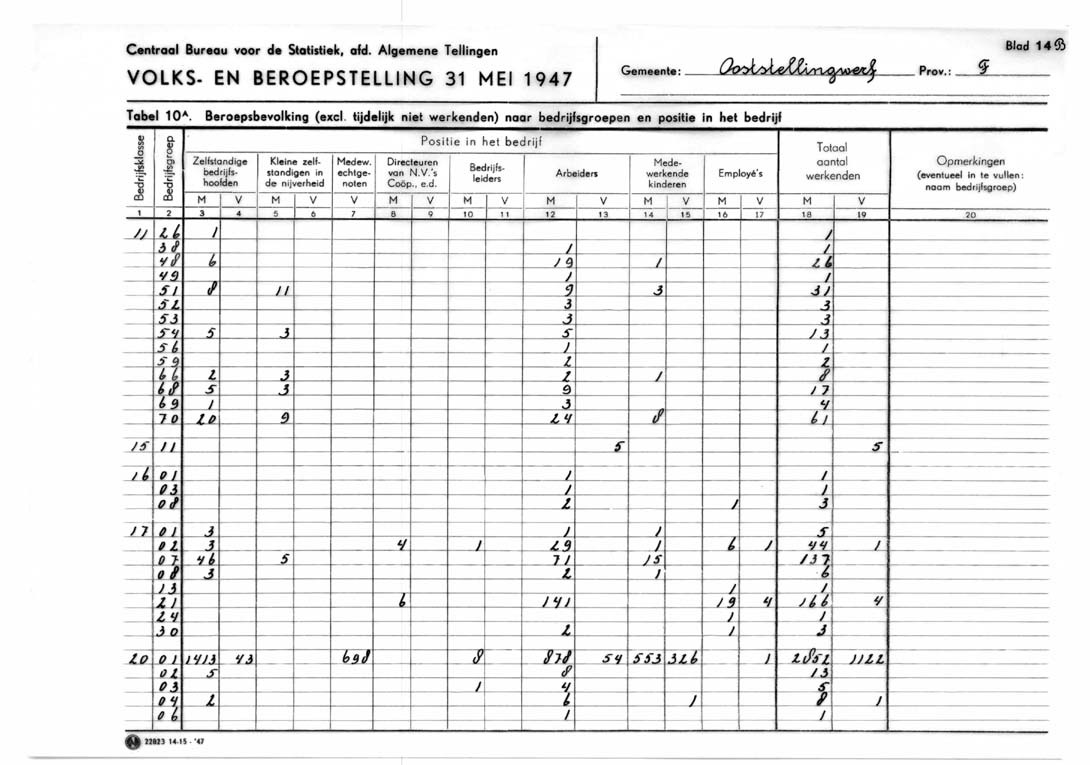 Blad 14B
Centraal Bureau voor de Statistiek, afd. Algemene Tellingen
VOLKS- EN BEROEPSTELLING 31 MEI 1947
Gemeente: Ooststellingwerf Prov.: F
Tabel 10A. Beroepsbevolking (excl. tijdelijk niet werkenden) naar bedrijfsgroepen en positie in het bedrijf
Bedrijfsklasse Bedrijfsgroep Positie in het bedrijf Totaal aantal werkenden Opmerkingen (eventueel in te vullen: naam bedrijfsgroep)
Zelfstandige bedrijfs-hoofden Kleine zelf-standigen in de nijverheid Medew. echtge-noten Directeuren van N.V.'s Coöp., e.d. Bedrijfs-leiders Arbeiders Mede-werkende kinderen Employé's
M V M V V M V M V M V M V M V M V
1 2 3 4 5 6 7 8 9 10 11 12 13 14 15 16 17 18 19 20
11 26 1 1
38 1 1
48 6 19 1 26
49 1 1
51 8 11 9 3 31
52 3 3
53 3 3
54 5 3 5 13
56 1 1
59 2 2
66 2 3 2 1 8
68 5 3 9 17
69 1 3 4
70 20 9 24 8 61
15 11 5 5
16 01 1 1
03 1 1
08 2 1 3
17 01 3 1 1 5
02 3 4 1 29 1 6 1 44 1
07 46 5 71 15 137
08 3 2 1 6
13 1 1
21 6 141 19 4 166 4
24 1 1
30 2 1 3
20 01 1413 43 698 8 878 54 553 326 1 2852 1122
02 5 8 13
03 1 4 5
04 2 6 1 8 1
06 1 1
22823 14-15 - '47